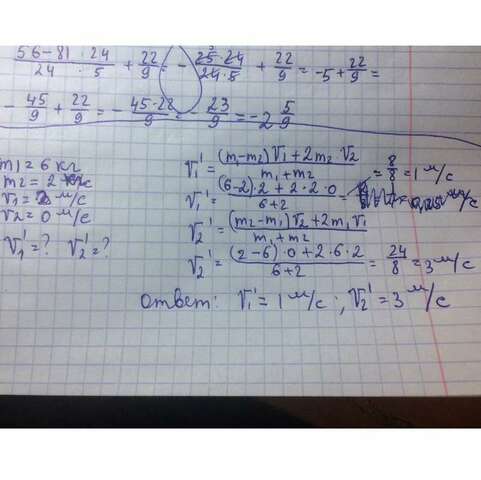 56-81 · 24 / 24 · 5 + 22/9 = - 25·24 / 24·5 + 22/9 = -5 + 22/9 =
- 45/9 + 22/9 = - 45-22 / 9 = - 23/9 = -2 5/9
m1 = 6 кг
m2 = 2 кг
v1 = 2 м/с
v2 = 0 м/с
v1' = ? v2' = ?
v1' = (m1-m2)v1 + 2m2·v2 / m1+m2
v1' = (6-2)·2 + 2·2·0 / 6+2 = 8/8 = 1 м/с
v2' = (m2-m1)v2 + 2m1v1 / m1+m2
v2' = (2-6)·0 + 2·6·2 / 6+2 = 24/8 = 3 м/с
ответ: v1' = 1 м/с; v2' = 3 м/с